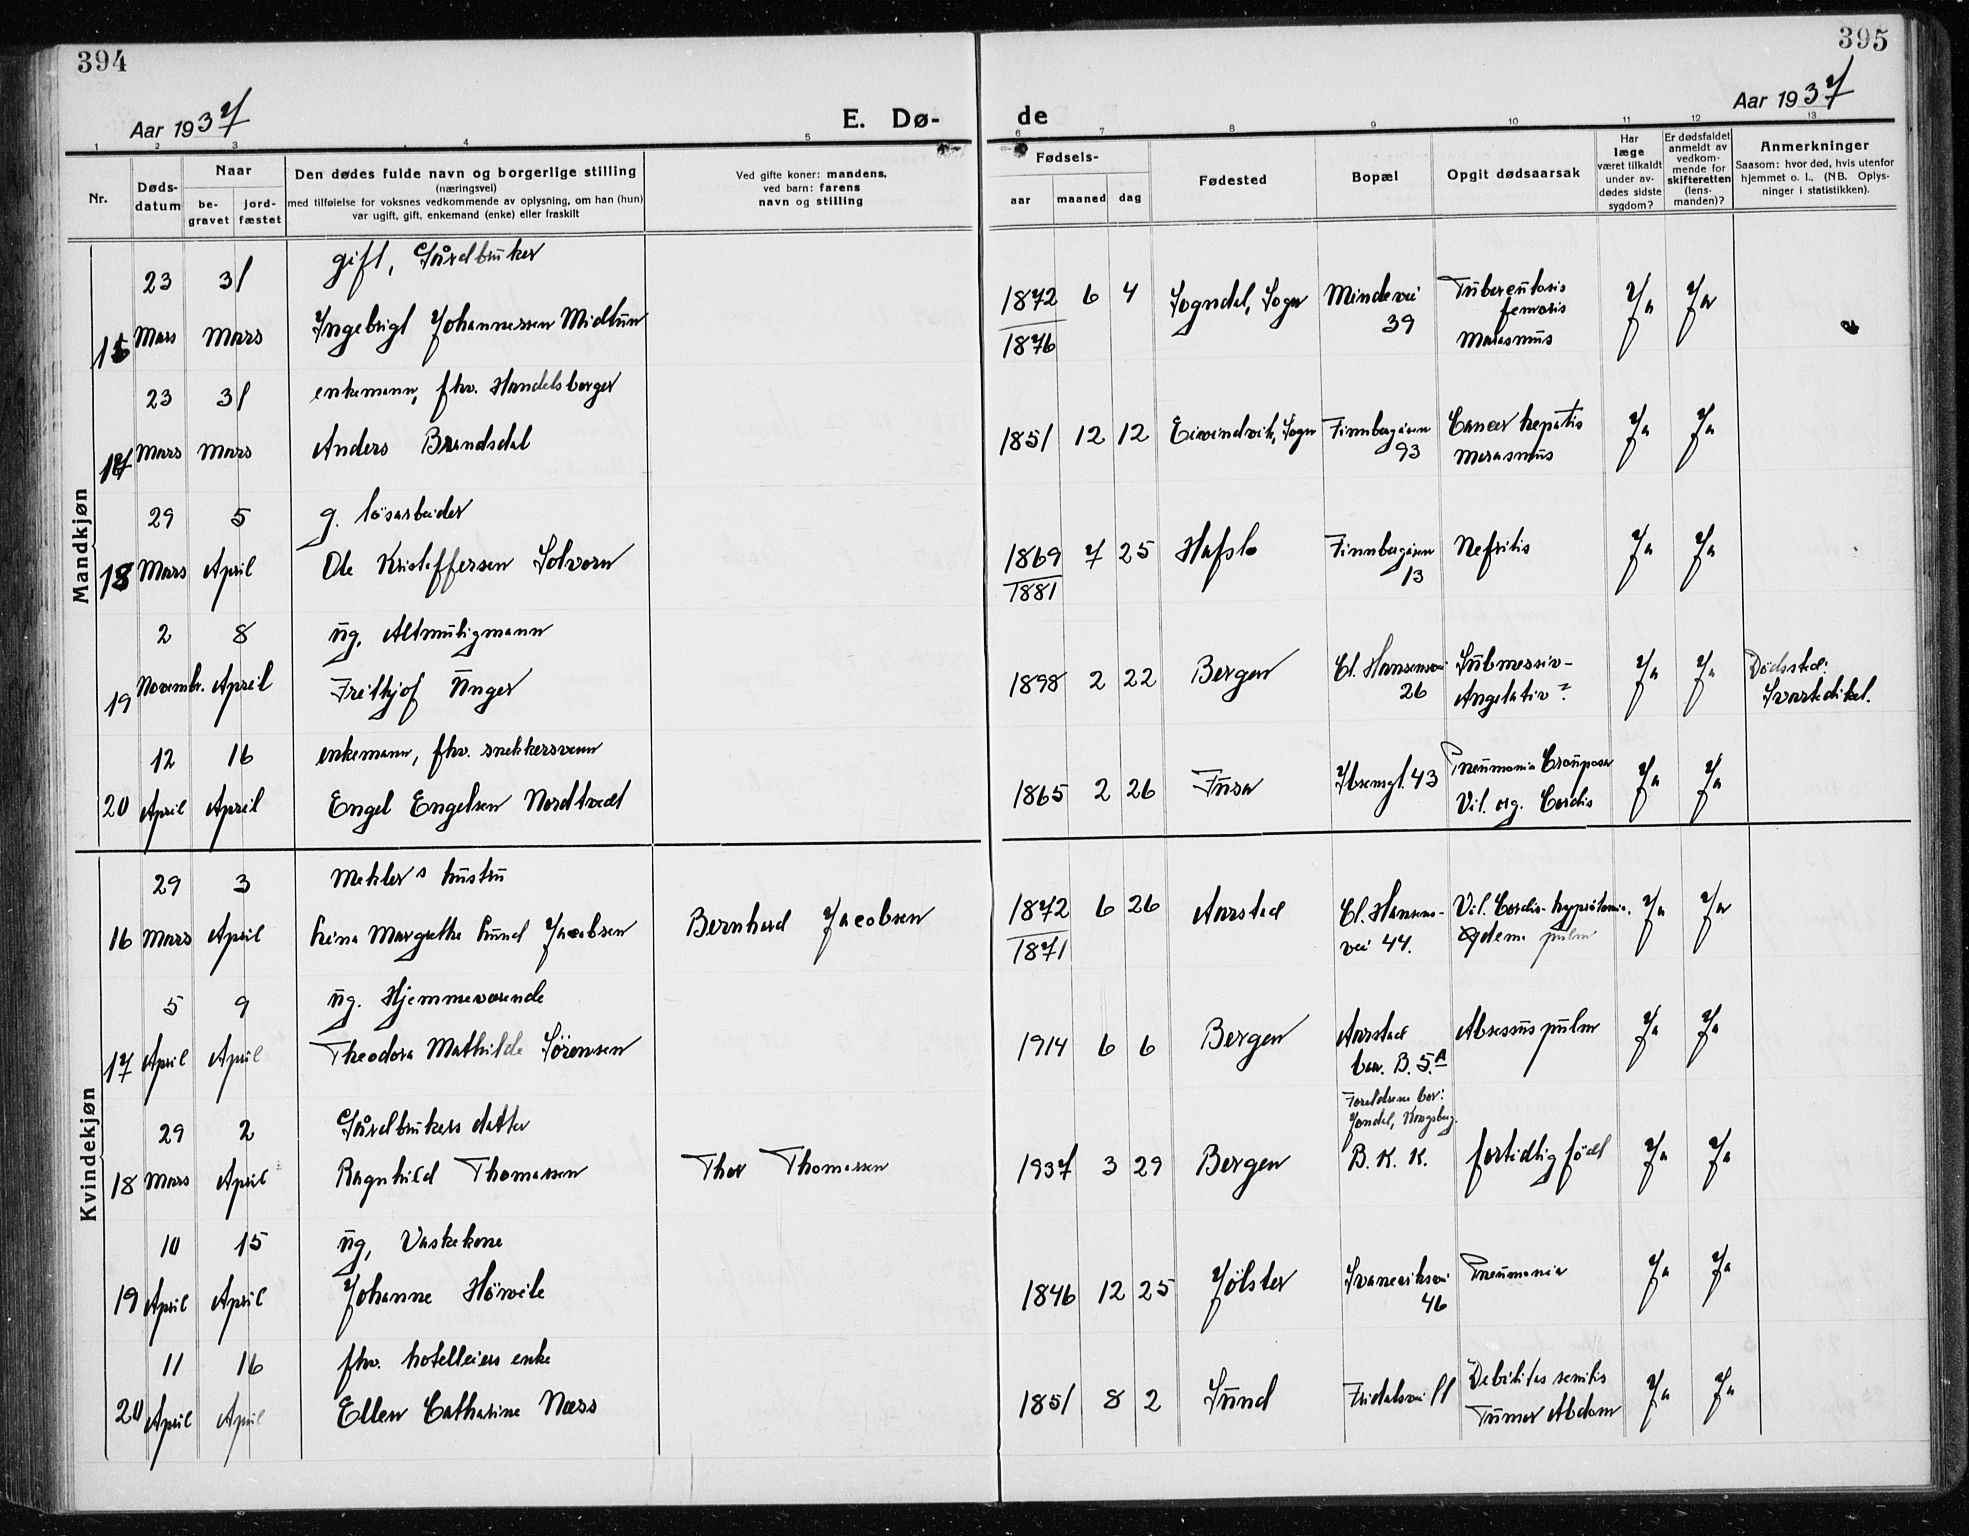 394
395
Aar 1937
E. Dø-
de
Aar 1937
1 2 3 4 5 6 7 8 9 10 11 12 13
Nr.
Døds-
datum
Naar
be-
gravet
jord-
fæstet
Den dødes fulde navn og borgerlige stilling
(næringsvei)
med tilføielse for voksnes vedkommende av oplysning, om han (hun)
var ugift, gift, enkemand (enke) eller fraskilt
Ved gifte koner: mandens,
ved barn: farens
navn og stilling
Fødsels-
aar
maaned
dag
Fødested
Bopæl
Opgit dødsaarsak
Har
læge
været tilkaldt
under av-
dødes sidste
sygdom?
Er dødsfaldet
anmeldt av
vedkom-
mende for
skifteretten
(lens-
manden)?
Anmerkninger
Saasom: hvor død, hvis utenfor
hjemmet o. l.. (NB. Oplys-
ninger i statistikken).
Mandkjøn
23 31 gift, Gårdbruker
16 Mars Mars Ingebrigt Johannessen Midtun
1872 6 4 Sogndal, Sogn Mindevei Tuberculosis Ja Ja
39 femoris
1876 Marasmus
23 31 enkemann, fhv. Handelsborger
17 Mars Mars Anders Brandsdal
1851 12 12 Eivindvik, Sogn Finnbergåsen Cancer hepatis Ja Ja
93 Marasmus
29 5 g. løsarbeider
18 Mars April Ole Kristoffersen Solvorn
1869 7 25 Hafslo Finnbergåsen Nefritis Ja Ja
13
1881
2 8 ug. Altmuligmann
19 Novembr. April Freithjof Unger
1898 2 22 Bergen Cl. Hansensvei Submessiv- Ja Ja Dødssted:
26 Svartediket.
12 16 enkemann, fhv. snekkersvenn
20 April April Engel Engelsen Nordtvedt
1865 2 26 Fusa Ibsensgt. 43 Pneumonia Crouposa Ja Ja
Vit. org. Cordis
Kvindekjøn
29 3 Mekler's hustru
16 Mars April Lina Margrethe Lund Jacobsen Bernhard Jacobsen
1872 6 26 Aarstad Cl. Hansens- Vit. Cordis- Ja Ja
vei 44. Ødem pulm
1871
5 9 ug. Hjemmeværende
17 April April Theodora Mathilde Sörensen
1914 6 6 Bergen Aarstad Absessus pulm Ja Ja
bar. B. 5.A
29 2 Gårdbrukers datter
18 Mars April Ragnhild Thomassen Thor Thomassen
Foreldrene bor:
Jondal, Kongsberg.
1937 3 29 Bergen B. K. K. fortidlig født Ja Ja
10 15 ug, Vaskekone
19 April April Johanne Hövik
1846 12 25 Jölster Svaneviksvei Pneumonia Ja Ja
46
11 16 fhv. hotelleiers enke
20 April April Ellen Catharine Næss
1851 8 2 Sund Fridalsvei 11 Debilitas senilis Ja Ja
Tumor Abdom